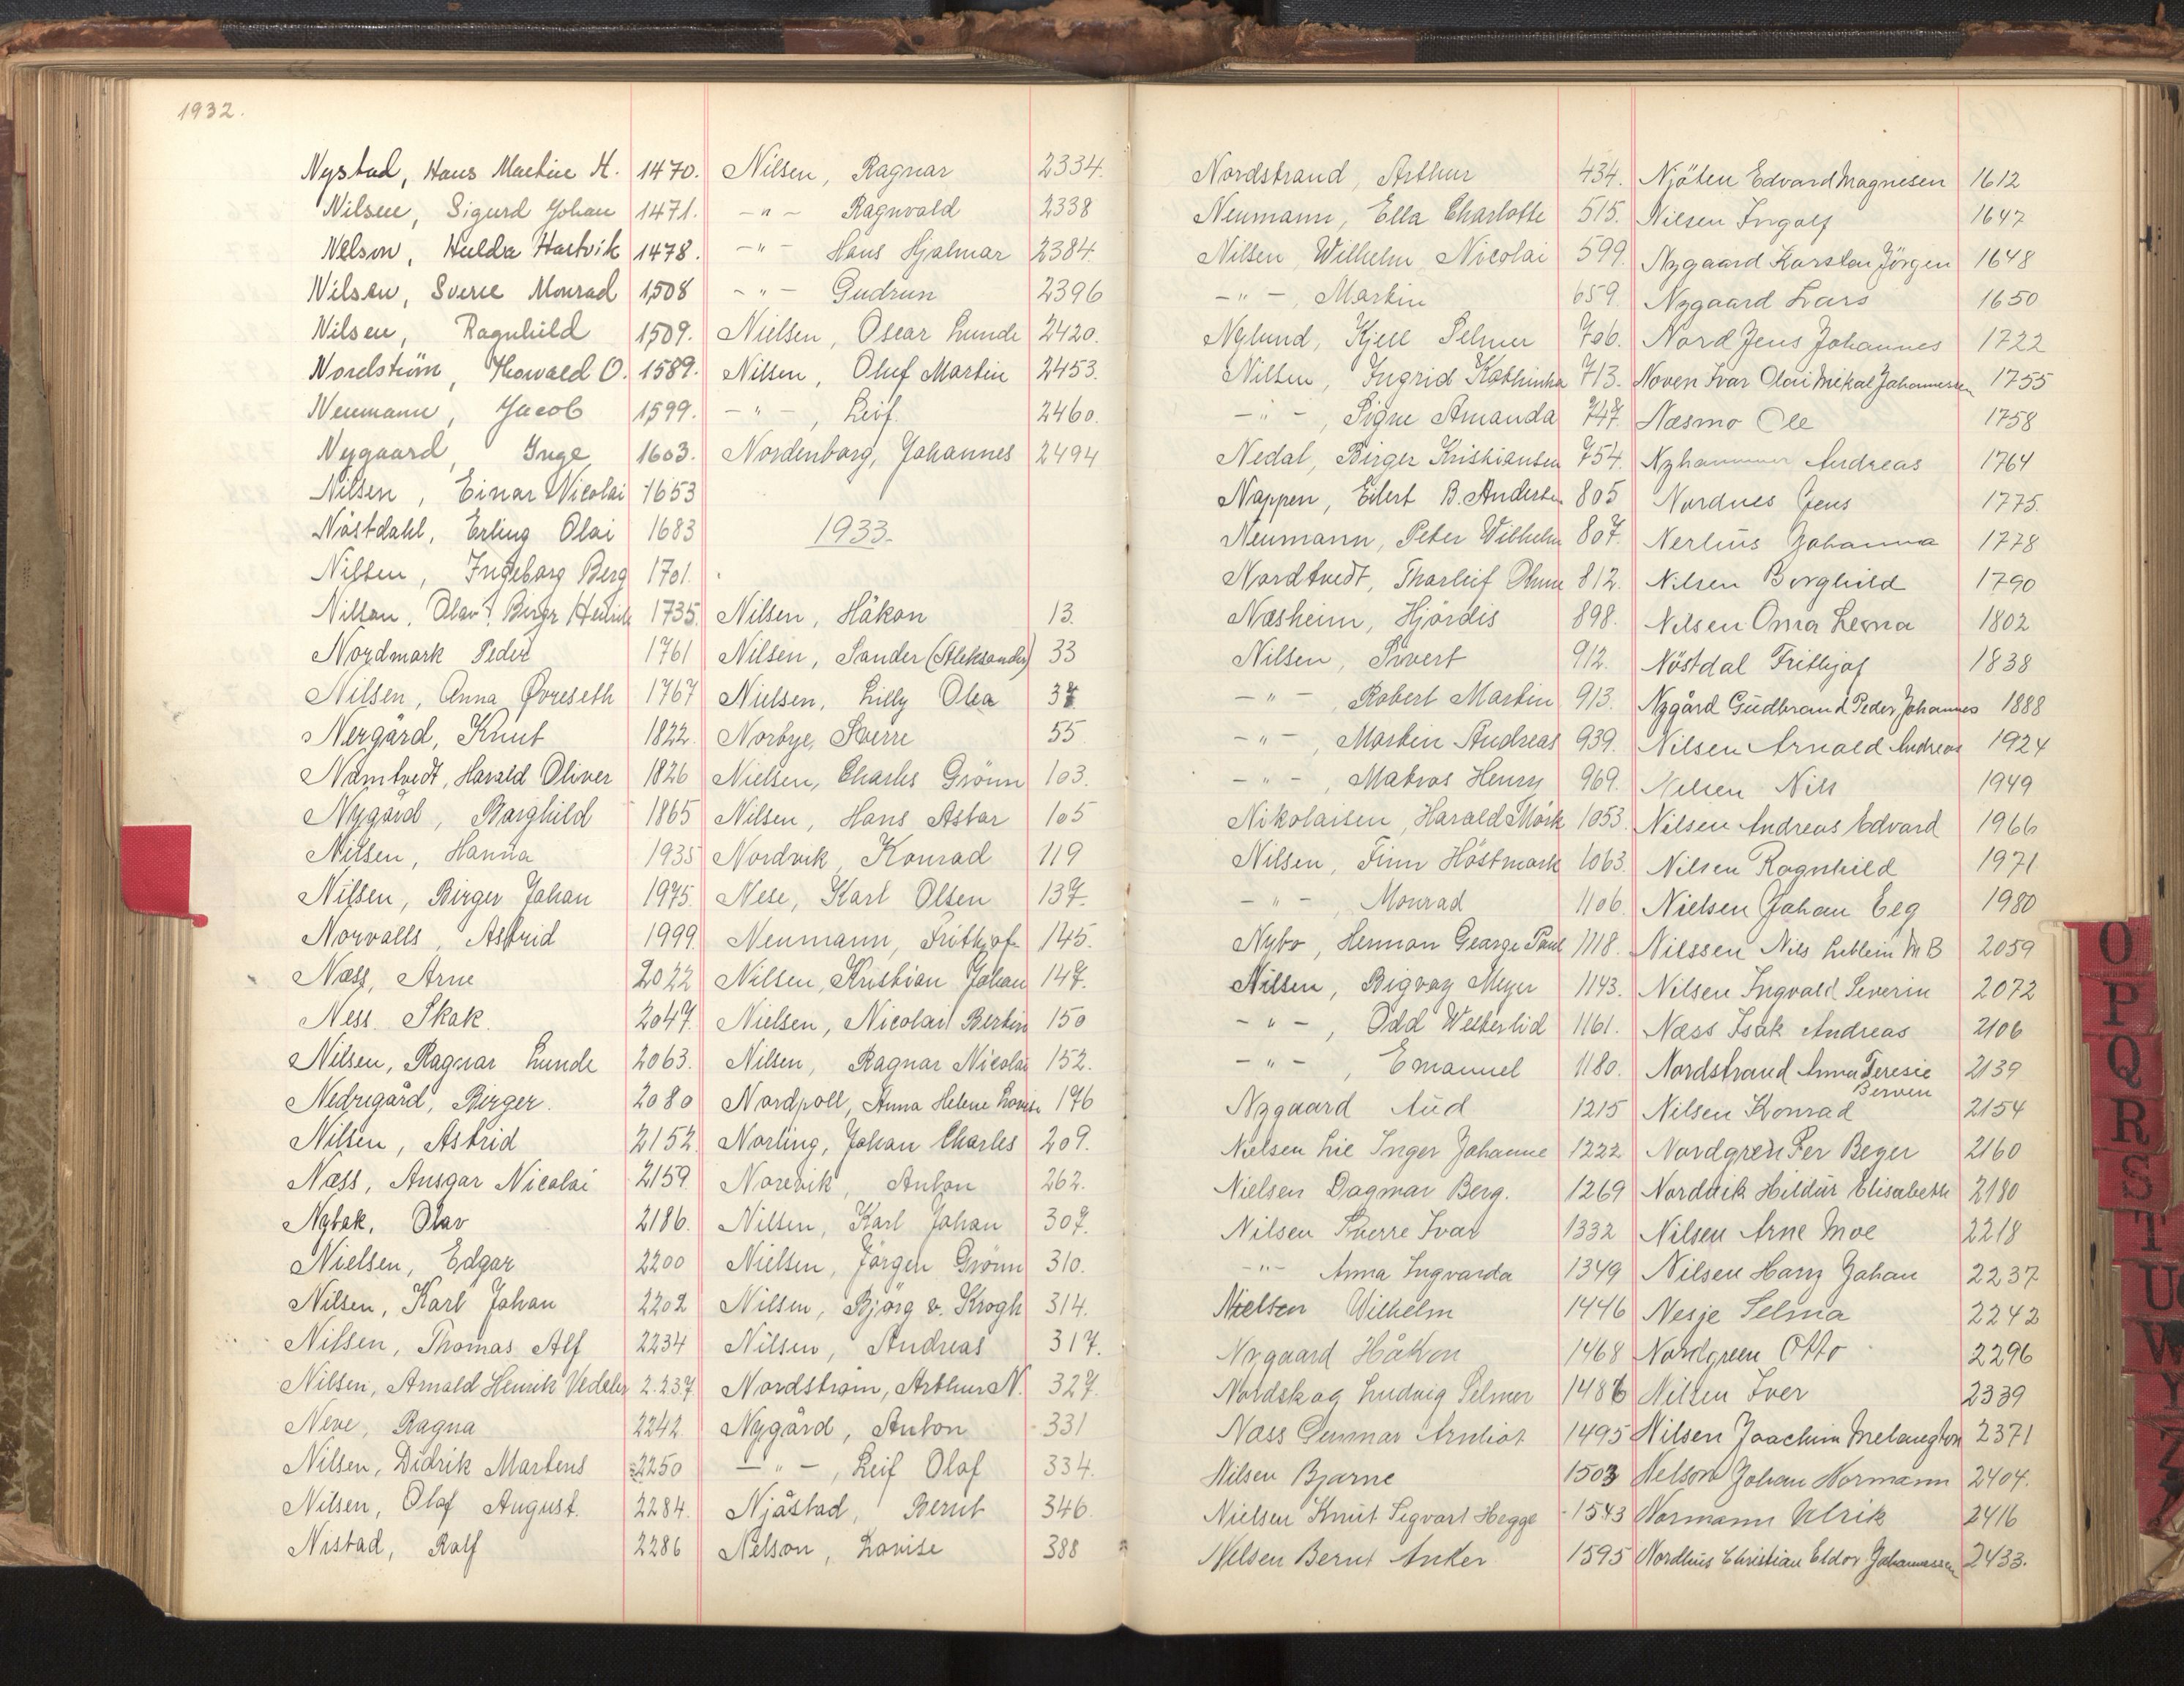 1932.
Nystad, Hans Martin H. 1470.
Nilsen, Sigurd Johan 1471.
Nelson, Hulda Hartvik 1478.
Nilsen, Sverre Monrad 1508
Nilsen, Ragnhild 1509.
Nordström, Howald O. 1589.
Neumann, Jacob 1599.
Nygaard, Inge 1603.
Nilsen, Einar Nicolai 1653
Nåstdahl, Erling Olai 1683
Nilsen, Ingeborg Berg 1701.
Nilsen, Olav Birgr Henrik 1735.
Nordmark Peder 1761
Nilsen, Anna Øvreseth 1767
Nergård, Knut 1822.
Namtvedt, Harald Oliver 1826
Nygård, Borghild 1865
Nilsen, Hanna 1935
Nilsen, Birger Johan 1975.
Norvalls, Astrid 1999
Næss, Arne 2022
Ness Skak 2047.
Nilsen, Ragnar Lunde 2063.
Nedregård, Birger. 2080
Nilsen, Astrid 2152.
Næss, Ansgar Nicolai 2159.
Nybak, Olav 2186.
Nielsen, Edgar 2200
Nilsen, Karl Johan 2202
Nilsen, Thomas Alf 2234
Nilsen, Arnold Henrik Vedeler 2237.
Neve, Ragna 2242
Nilsen, Didrik Martens 2250
Nilsen, Olaf August. 2284.
Nistad, Rolf 2286
Nilsen, Ragnar 2334.
-"- Ragnvald 2338
-"- Hans Hjalmar 2384.
-"- Gudrun 2396
Nielsen, Oscar Lunde 2420.
Nilsen, Oluf Martin 2453.
-"-, Leif. 2460.
Nordenborg, Johannes 2494
1933.
Nilsen, Håkon 13.
Nilsen, Sander (Aleksander) 33
Nielsen, Lilly Olea 37
Norbye, Sverre 55
Nielsen, Charles Grönn 103.
Nilsen, Hans Astor 105
Nordvik, Konrad 119
Nese, Karl Olsen 137.
Neumann, Frithjof 145.
Nilsen, Kristian Johan 147.
Nielsen, Nicolai Bertin 150
Nilsen, Ragnar Nicolai 152.
Nordpoll, Anna Helene Lovise 176
Norling, Johan Charles 209.
Norevik, Anton 262.
Nilsen, Karl Johan 307.
Nielsen, Jörgen Grönn 310.
Nilsen, Björg v. Krogh 314.
Nilsen, Andreas 317.
Nordström, Arthur N. 327.
Nygård, Anton 331
-"-, Leif Olaf 334.
Njåstad, Bernt 346.
Nelson, Lovise 388
Nordstrand, Arthur 434.
Neumann, Ella Charlotte 515.
Nilsen, Wilhelm Nicolai 599.
-"-, Martin 659.
Nylund, Kjell Selmer 706.
Nilsen, Ingrid Kathinka 713.
-"-, Signe Amanda 747.
Nedal, Birger Kristiansen 754.
Nappen, Eilert B. Andersen 805
Neumann, Peter Wilhelm 807.
Nordtvedt, Thorleif 812.
Næsheim, Hjördis 898.
Nilsen, Sivert 912.
-"-, Robert Martin 913.
-"-, Martin Andreas 939.
-"-, Matros Henry 969.
Nikolaisen, Harald Mörk 1053.
Nilsen, Finn Höstmark 1063.
-"-, Monrad 1106.
Nybo, Herman George Paul 1118.
Nilsen, Bigvay Meyer 1143.
-"-, Odd Welterlid 1161.
-"-, Emanuel 1180.
Nygaard Aud 1215
Nielsen Lie Inger Johanne 1222
Nielsen Dagmar Berg. 1269
Nilsen Sverre Ivar 1332
-"- Anna Ingvarda 1349
Nielsen Wilhelm 1446
Nygaard Håkon 1468
Nordskog Ludvig Selmer 1486
Næss Gunnar Arnliot 1495
Nilsen Bjarne 1503
Nielsen Knut Sigvart Hegge 1543
Nilsen Bernt Anker 1595
Njöten Edvard Magnesen 1612
Nilsen Ingolf 1647
Nygaard Karsten Jörgen 1648
Nygaard Lars 1650
Nord Jens Johannes 1722
Noven Ivar Olai Mikal Johannessen 1755
Næsmo Ole 1758
Nyhammer Andreas 1764
Nordnes Jens 1775.
Nerhus Johanna 1778
Nilsen Borghild 1790
Nilsen Oma Leona 1802
Nöstdal Frithjof 1838
Nygård Gudbrand Peder Johannes 1888
Nilsen Arnold Andreas 1924
Nilsen Nils 1949
Nilsen Andreas Edvard 1966
Nilsen Ragnhild 1971
Nielsen Johan Eeg 1980
Nilssen Nils Lieblein M B 2059
Nilsen Ingvald Severin 2072
Næss Isak Andreas 2106
Nordstrand Anna Teresie Berven 2139
Nilsen Konrad 2154
Nordgren Per Beyer 2160
Nordvik Hildur Elisabeth 2180
Nilsen Arne Moe 2218
Nilsen Harry Johan 2237
Nesje Selma 2242
Nordgreen Otto 2296
Nilsen Iver 2339
Nilsen Joachim Melangton 2371
Nelson Johan Hermann 2404.
Normann Ulrik 2416
Nordhus Christian Eldor Johannessen 2433.
O
P
Q
R
S
T
U
W
Y
Z